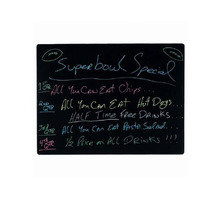 Superbowl Special
1st All You Can Eat Chips...
2nd All You Can Eat Hot Dogs...
HALF Time Free Drinks...
3rd All You Can Eat Pasta Salad...
4th 1/2 Price on All Drinks!!!